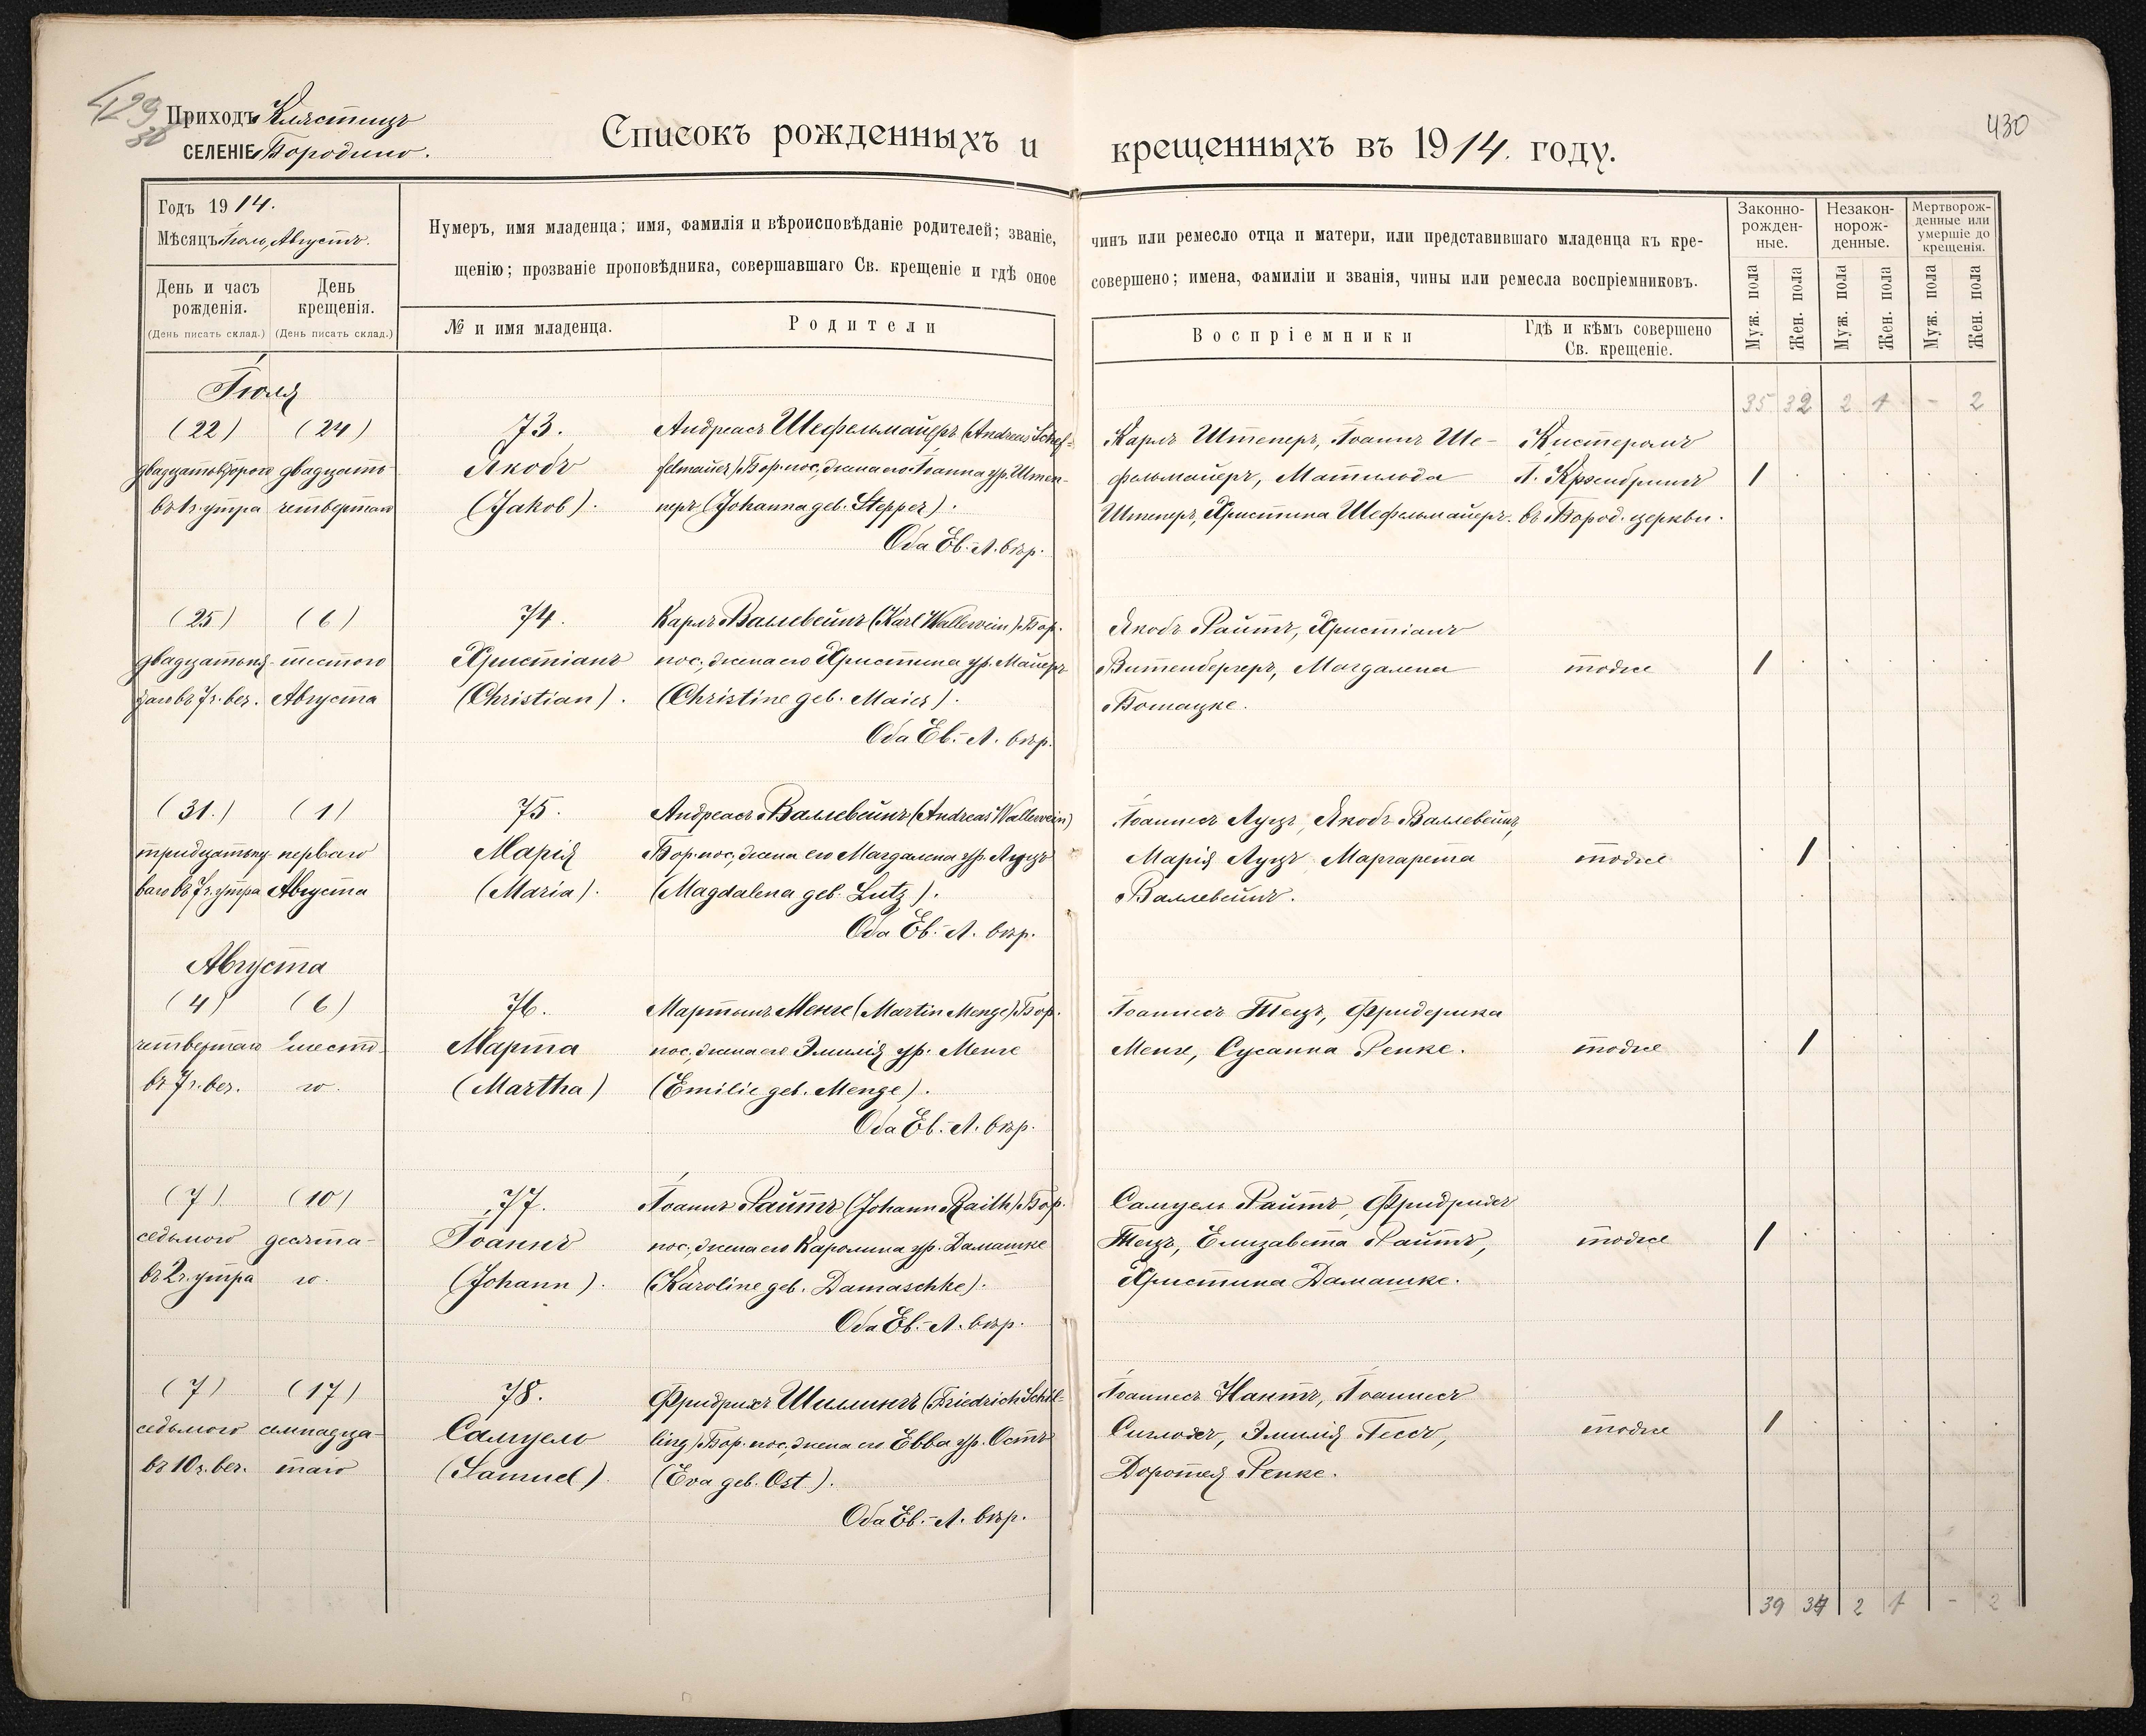 429
30
430
Приходъ Клястицъ
СЕЛЕНІЕ Бородино.
Списокъ рожденныхъ и крещенныхъ въ 1914. году.
Годъ 1914.
Мѣсяцъ Іюль, Августъ.
День и часъ рожденія.
(День писать склад.)
День крещенія.
(День писать склад.)
Нумеръ, имя младенца; имя, фамилія и вѣроисповѣданіе родителей; званіе, чинъ или ремесло отца и матери, или представившаго младенца къ кре-
щенію; прозваніе проповѣдника, совершавшаго Св. крещеніе и гдѣ оное совершено; имена, фамиліи и званія, чины или ремесла воспріемниковъ.
№ и имя младенца.
Родители
Воспріемники
Гдѣ и кѣмъ совершено Св. крещеніе.
Законно-рожден-ные.
Незакон-норож-денные.
Мертворож-денные или умершіе до крещенія.
Муж. пола
Жен. пола
Муж. пола
Жен. пола
Муж. пола
Жен. пола
35 32 2 1 - 2
Іюля
(22)
двадцатьвторого
въ 1 ч. утра
(24)
двадцать
четвертаго
73.
Якобъ
(Jakob).
Андреасъ Шефельмайеръ (Andreas Schef-
felmaier) Бор. пос., жена его Іоанна ур. Штеп-
перъ (Johanna geb. Stepper).
Оба Ев.-Л. вѣр.
Карлъ Штеперъ, Іоаннъ Ше-
фельмайеръ, Матильда
Штеперъ, Христина Шефельмайеръ.
Кистеромъ
въ Бород. церкви.
1
(25)
двадцатьпя-
таго въ 7 ч. веч.
(6)
шестого
Августа
74.
Христіанъ
(Christian).
Карлъ Валлевейнъ (Karl Wallewein) Бор.
пос., жена его Христина ур. Майеръ
(Christine geb. Maier).
Оба Ев.-Л. вѣр.
Якобъ Райтъ, Христіанъ
Витенбергеръ, Магдалена
тоже
1
(31.)
тридцатьпер-
ваго въ 7 ч. утра
(1)
перваго
Августа
75.
Марія
(Maria).
Андреасъ Валлевейнъ (Andreas Wallewein)
Бор. пос., жена его Магдалена ур. Луцъ
(Magdalena geb. Lutz).
Оба Ев.-Л. вѣр.
Іоаннесъ Луцъ, Якобъ Валлевейнъ,
Марія Луцъ, Маргарета
Валлевейнъ.
тоже
1
Августа
(4)
четвертаго
въ 7 ч. веч.
(6)
шесто-
го.
76.
Марта
(Martha)
Мартынъ Менге (Martin Menge) Бор.
пос., жена его Эмилія ур. Менге
(Emilie geb. Menge).
Оба Ев.-Л. вѣр.
Іоаннесъ Тецъ, Фридерика
Менге, Сусанна Репке.
тоже
1
(7)
седьмого
въ 2 ч. утра
(10)
десята-
го.
77.
Іоаннъ
(Johann).
Іоаннъ Райтъ (Johann Raith) Бор.
пос., жена его Каролина ур. Дамашке
(Karoline geb. Damaschke).
Оба Ев.-Л. вѣр.
Самуель Райтъ, Фридрихъ
Тецъ, Елизавета Райтъ,
Христина Дамашке.
тоже
1
(7)
седьмого
въ 10 ч. веч.
(17)
семнадца-
таго
78.
Самуелъ
(Samuel).
Фридрихъ Шиллингъ (Friedrich Schil-
ling) Бор. пос., жена его Ева ур. Остъ
(Eva geb. Ost).
Оба Ев.-Л. вѣр.
Іоаннесъ Нантъ, Іоаннесъ
Доротея Репке.
тоже
1
39 34 2 1 - 2